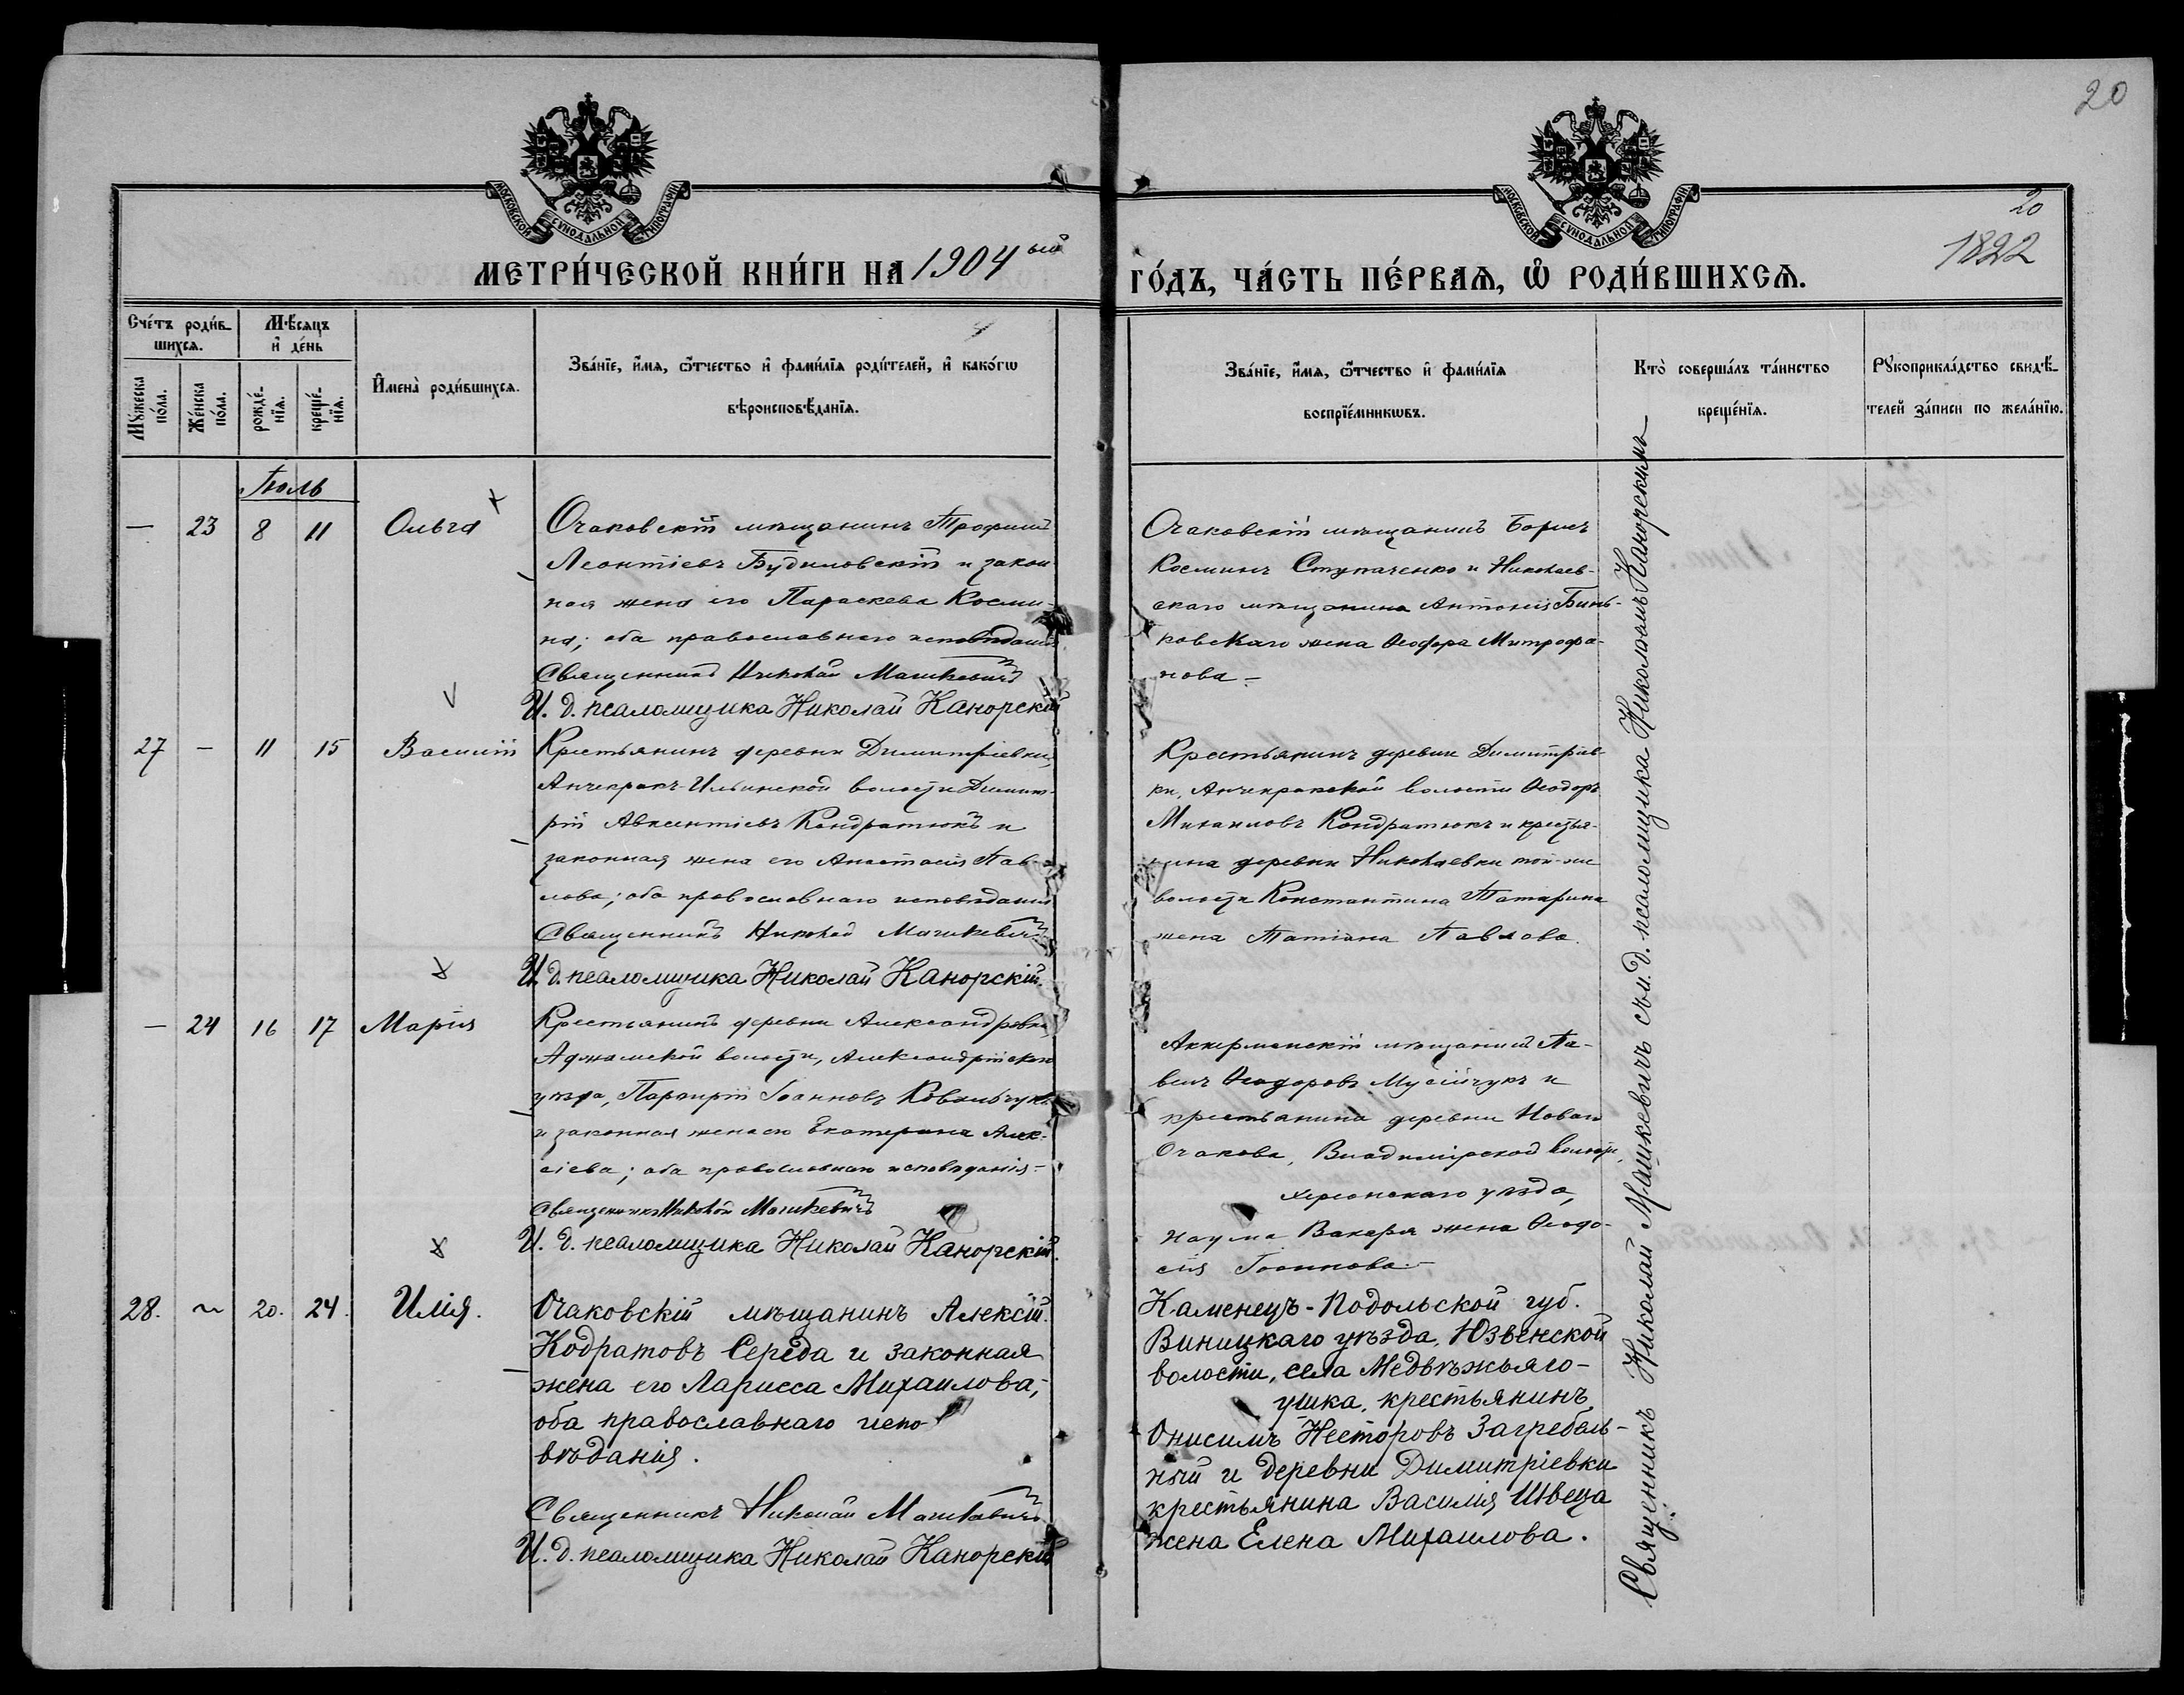 20
20
1822
МОСКОВСКОЙ СѴНОДАЛЬНОЙ ТИПОГРАФІИ
МОСКОВСКОЙ СѴНОДАЛЬНОЙ ТИПОГРАФІИ
МЕТРИ́ЧЕСКОЙ КНИ́ГИ НА 1904 ый ГО́ДЪ, ЧА́СТЬ ПЕ́РВАѦ, Ѡ҆ РОДИ́ВШИХСѦ.
Сче́тъ роди́в-
шихсѧ.
Мѣ́сѧцъ
и҆ де́нь
Мꙋ́жеска по́ла.
Же́нска по́ла.
рожде́-
нїѧ.
креще́-
нїѧ.
И҆мена̀ роди́вшихсѧ.
Зва́нїе, и҆́мѧ, ѻ҆́тчество и҆ фами́лїѧ роди́телей, и҆ како́гѡ
вѣроисповѣ́данїѧ.
Зва́нїе, и҆́мѧ, ѻ҆́тчество и҆ фами́лїѧ
воспрїе́мникѡвъ.
Кто̀ соверша́лъ та́инство
креще́нїѧ.
Рꙋкоприкла́дство свидѣ́-
телей за́писи по жела́нїю.
Іюль
— 23 8 11 Ольга
Очаковскій мѣщанинъ Трофимъ
Леонтіевъ Будиловскій и закон-
ная жена его Параскева Косми-
на; оба православнаго исповѣданія
Священникъ Николай Машкевичъ
И. д. псаломщика Николай Канорскій
Очаковскій мѣщанинъ Борисъ
Косминъ Ступаченко и Николаев-
скаго мѣщанина Антонія Бинь-
ковскаго жена Ѳеофора Митрофа-
нова.—
27 — 11 15 Василій
Крестьянинъ деревни Димитріевки,
Анчекракъ-Ильинской волости Димит-
рій Авксентіевъ Кондратюкъ и
законная жена его Анастасія Пав-
лова; оба православнаго исповѣданія
Священникъ Николай Машкевичъ
И. д. псаломщика Николай Канорскій.
Крестьянинъ деревни Димитріев-
ки, Анчекракской волости Ѳеодоръ
Михаиловъ Кондратюкъ и крестья-
нина деревни Николаевки той-же
волости Константина Татарина
жена Татіана Павлова.
— 24 16 17 Марія
Крестьянинъ деревни Александровки,
Аджамской волости, Александрійскаго
уѣзда, Парфирій Іоанновъ Ковальчукъ
и законная жена его Екатерина Алек-
сіева; оба православнаго исповѣданія—
Священникъ Николай Машкевичъ
И. д. псаломщика Николай Канорскій.
Аккерманскій мѣщанинъ Па-
велъ Ѳеодоровъ Мусійчукъ и
крестьянина деревни Новаго
Очакова, Владимірской волости,
Херсонскаго уѣзда,
Наума Вакаря жена Ѳеодо-
сія Іоаннова.—
28. ~ 20. 24. Илія.
Очаковскій мѣщанинъ Алексій
Кодратовъ Середа и законная
жена его Ларисса Михаилова;
оба православнаго испо-
вѣданія.
Священникъ Николай Машкевичъ
И. д. псаломщика Николай Канорскій
Каменецъ-Подольской губ.
Виницкаго уѣзда, Юзвенской
волости, села Медвѣжьяго-
ушка, крестьянинъ
Онисимъ Несторовъ Загребель-
ный и деревни Димитріевки
крестьянина Василія Швеца
жена Елена Михаилова.
Священникъ Николай Машкевичъ съ и. д. псаломщика Николаемъ Канорскимъ